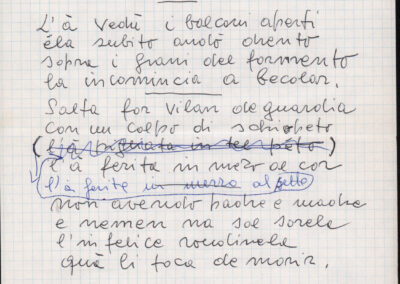 L'à vedù i balconi aperti
éla subito andò drento
sopra i grani del formento
la incomincia a becolar.
Salta for vilan de guardia
con un colpo di schiopeto
(l'à pigliata in tel peto)
l'à ferita in mezo al cor
l'à ferita in mezzo al petto
non avendo padre e madre
e nemen na sol sorela
l'infelice rondinela
quà li toca de morir.